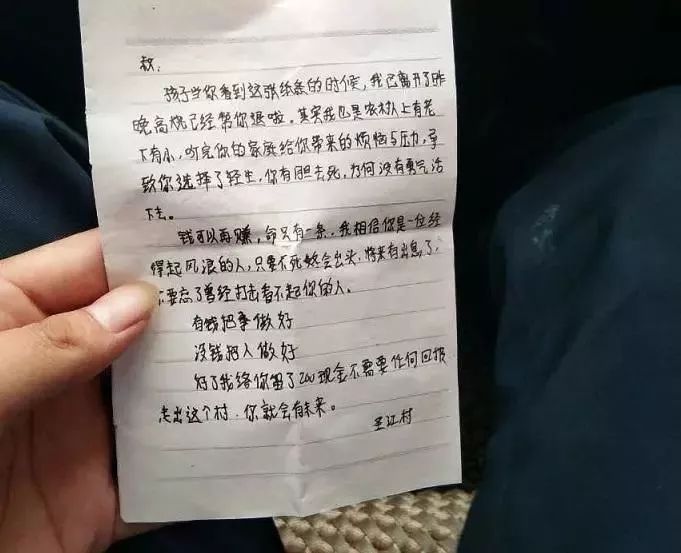 叔：
孩子当你看到这张纸条的时候，我已离开了昨
晚高烧已经帮你退啦。其实我也是农村人上有老
下有小，听完你的家庭给你带来的烦恼与压力，导
致你选择了轻生，你有胆去死，为何没有勇气活
下去。
钱可以再赚，命只有一条，我相信你是一位经
得起风浪的人，只要不死终会出头，将来有出息了，
不要忘了曾经打击看不起你的人。
有钱把事做好
没钱把人做好
对了我给你留了200现金不需要任何回报
走出这个村，你就会有未来。
王江村